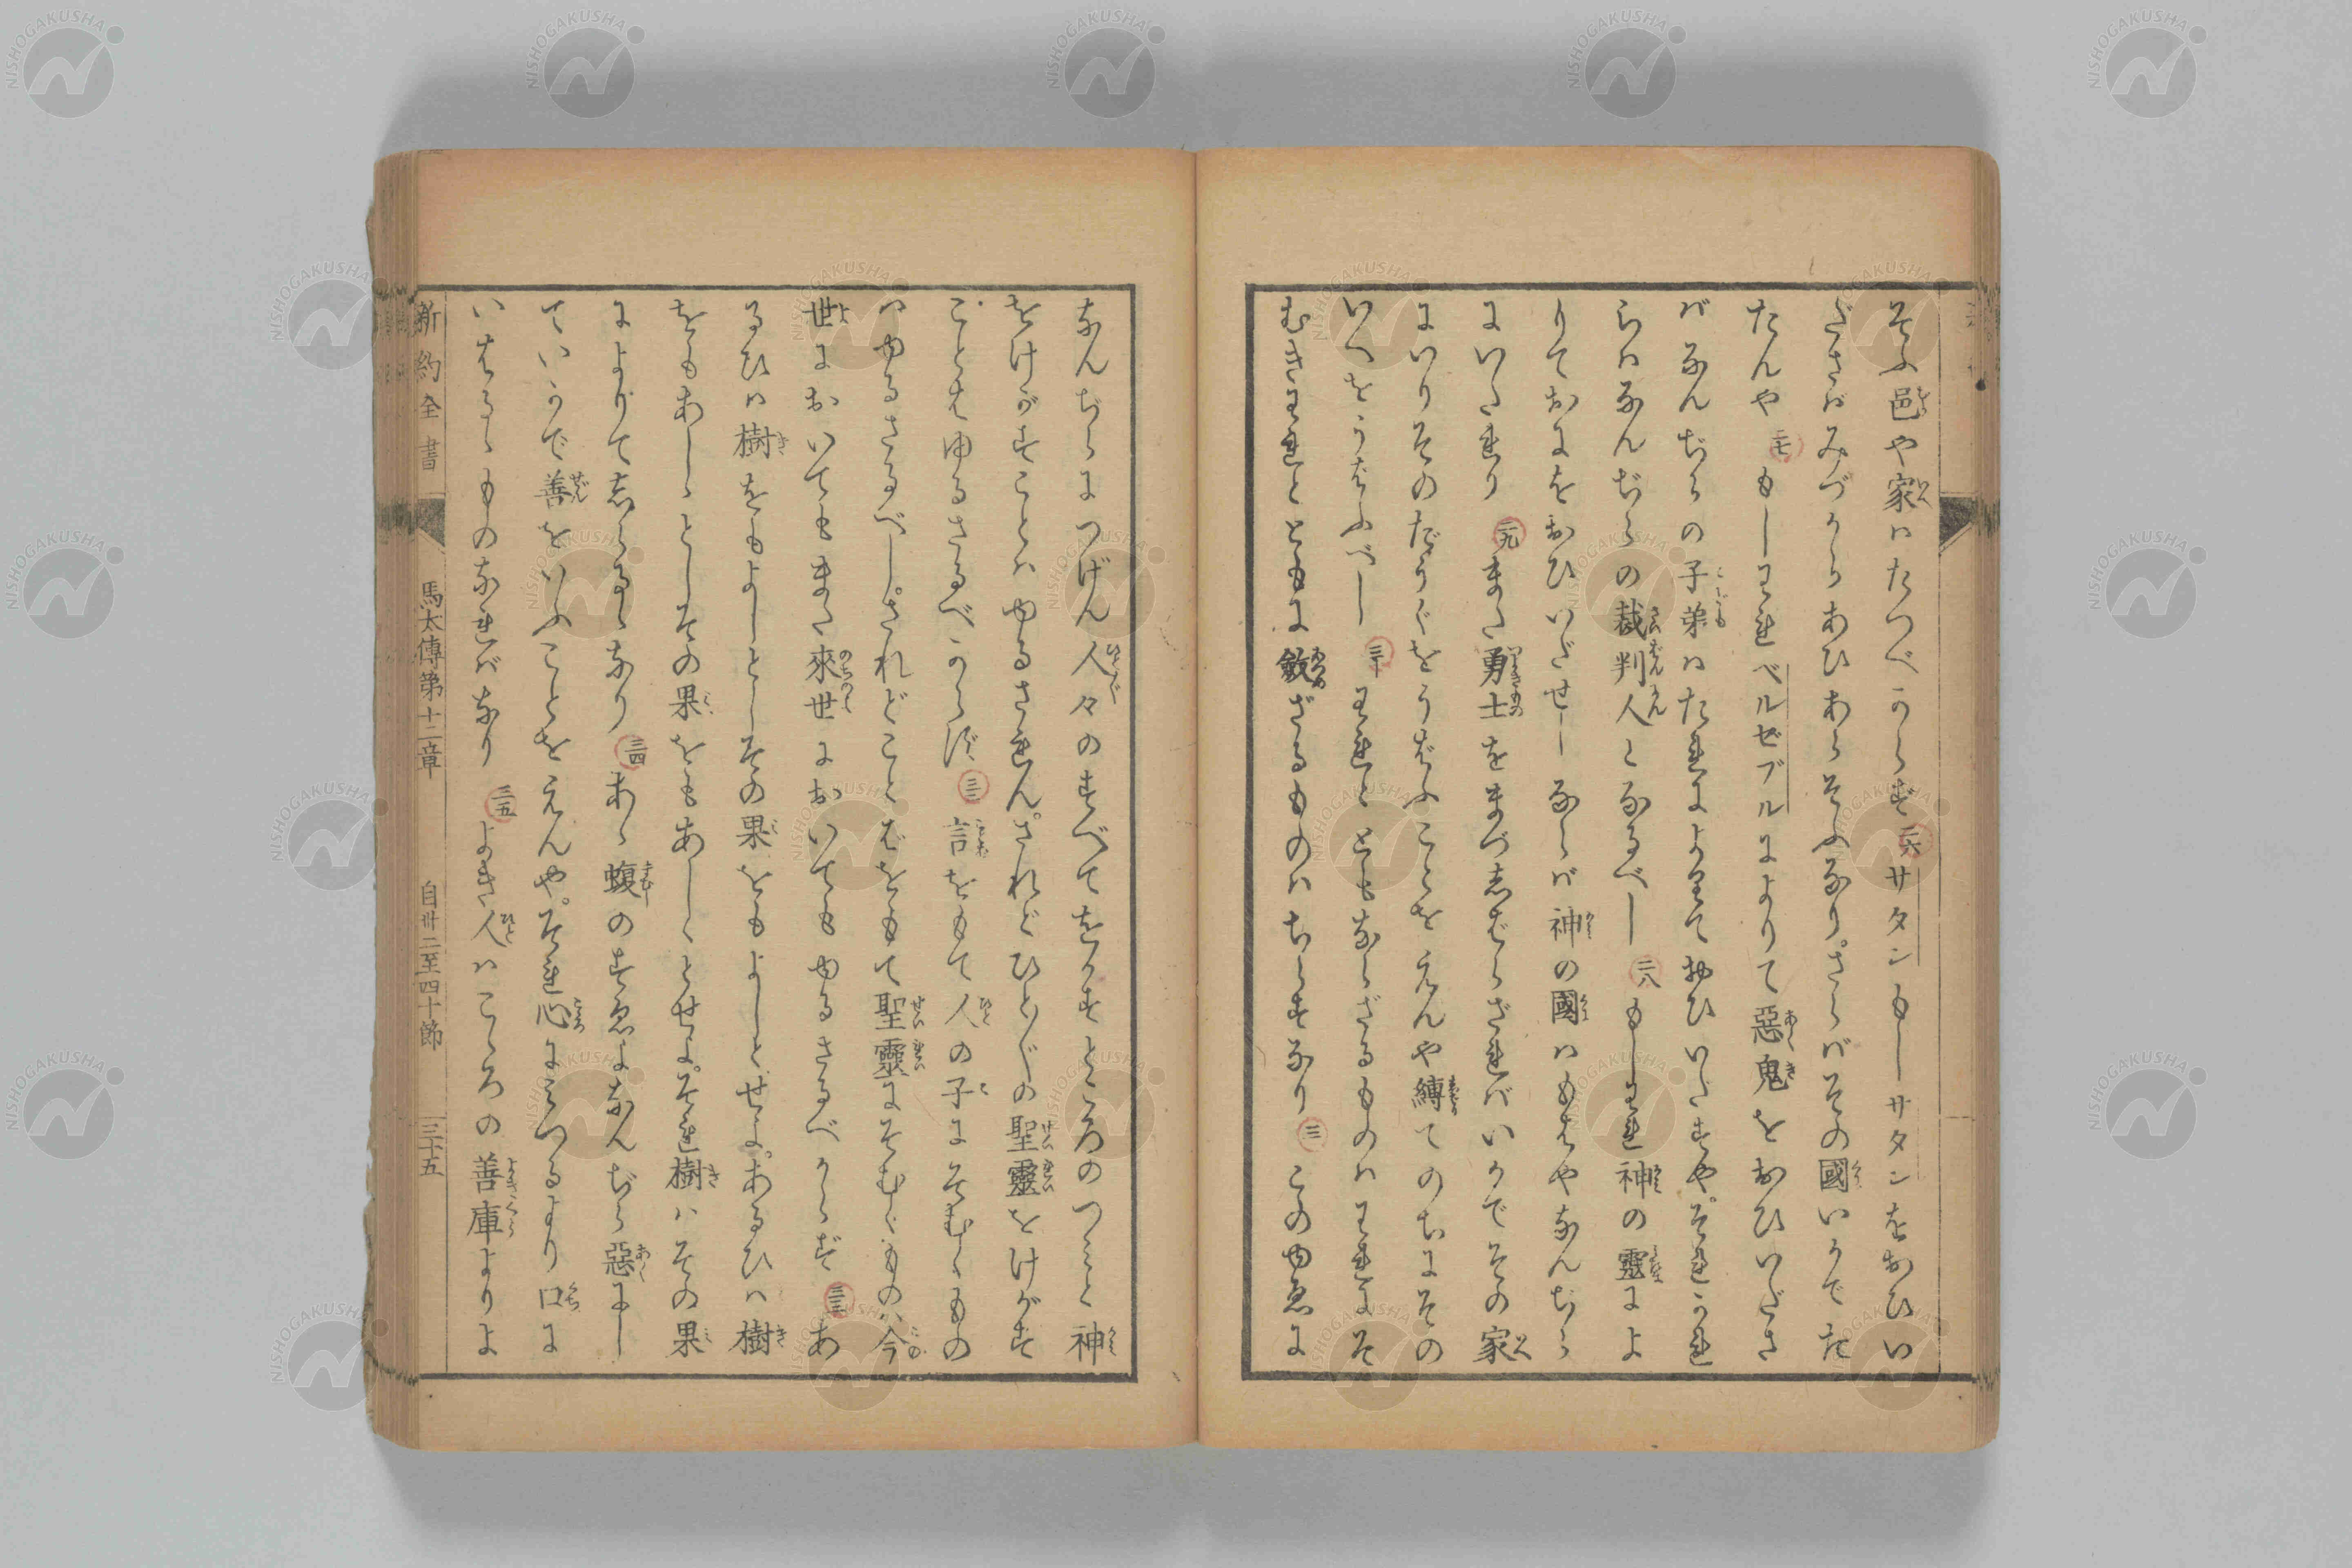 そふ邑や家ハたつべからず 二六 サタンもしサタンをおひい
ださバみづからあひあらそふなり。さらバその國いかでた
たんや 二七 もしわれベルゼブルによりて惡鬼をおひいださ
バなんぢらの子弟ハたれによりておひいだすや。それかれ
らハなんぢらの裁判人となるべし 二八 もしわれ神の靈によ
りておにをおひいだせしならバ神の國ハもはやなんぢら
にいたれり 二九 また勇士をまづしばらざれバいかでその家
にいりそのだうぐをうばふことをえんや縛てのちにその
いへをうばふべし 三十 われとともならざるものハわれにそ
むきわれとともに斂ざるものハちらすなり 三一 このゆゑに
なんぢらにつげん人々のすべてをかすところのつみと神
をけがすことハゆるされん。されどひとびとの聖靈をけがす
ことはゆるさるべからず 三二 言をもて人の子にそむくもの
ハゆるさるべし。されどことばをもて聖靈にそむくものハ今
世においてもまた來世においてもゆるさるべからず 三三 あ
るひハ樹をもよしとしその果をもよしとせよ。あるひハ樹
をもあしゝとしその果をもあしゝとせよ。それ樹ハその果
によりてしらるゝなり 三四 あゝ蝮のすゑよなんぢら惡にし
ていかで善をいふことをえんや。それ心にみつるより口に
いはるゝものなれバなり 三五 よき人ハこゝろの善庫よりよ
新約全書 馬太傳第十二章 自卅二至四十節 三十五